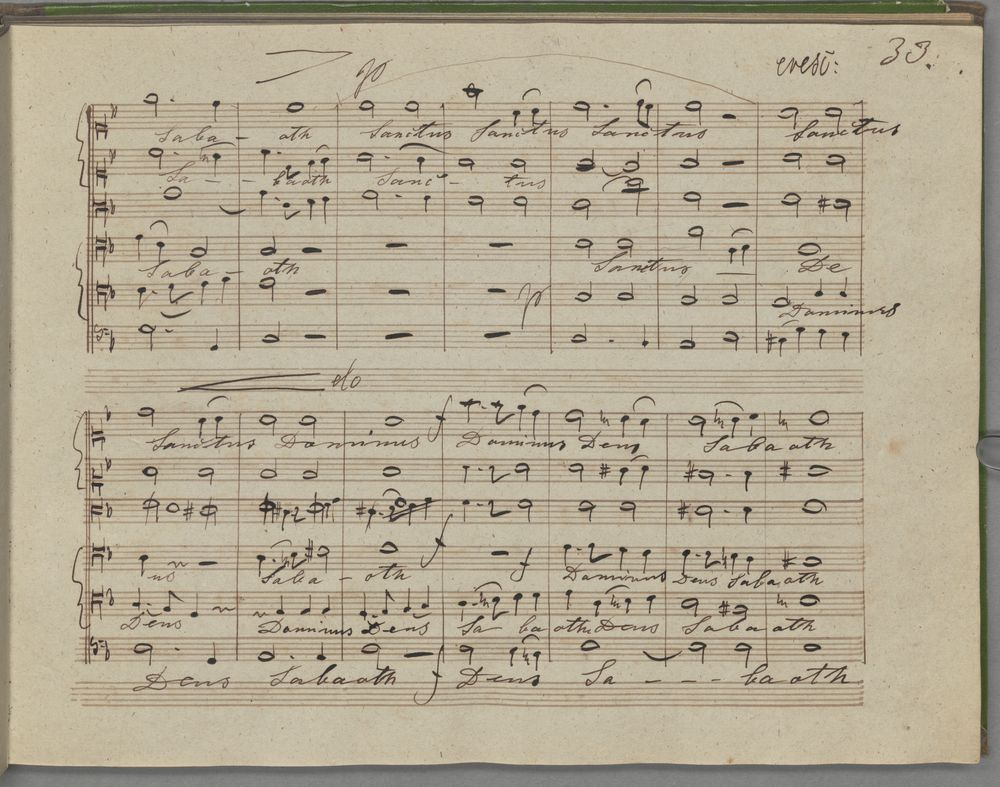 cresc: 33.
p
Saba - oth Sanctus Sanctus Sanctus Sanctus
Sa - - baoth Sanc - tus
Saba - oth Sanctus De
p
Dominus
do
f
Sanctus Dominus Dominus Deus Sabaoth
f
f
us Saba - oth Dominus Deus Sabaoth
Deus Dominus Deus Sa ba oth Deus Saba oth
f
Deus Sabaoth Deus Sa - - - ba oth